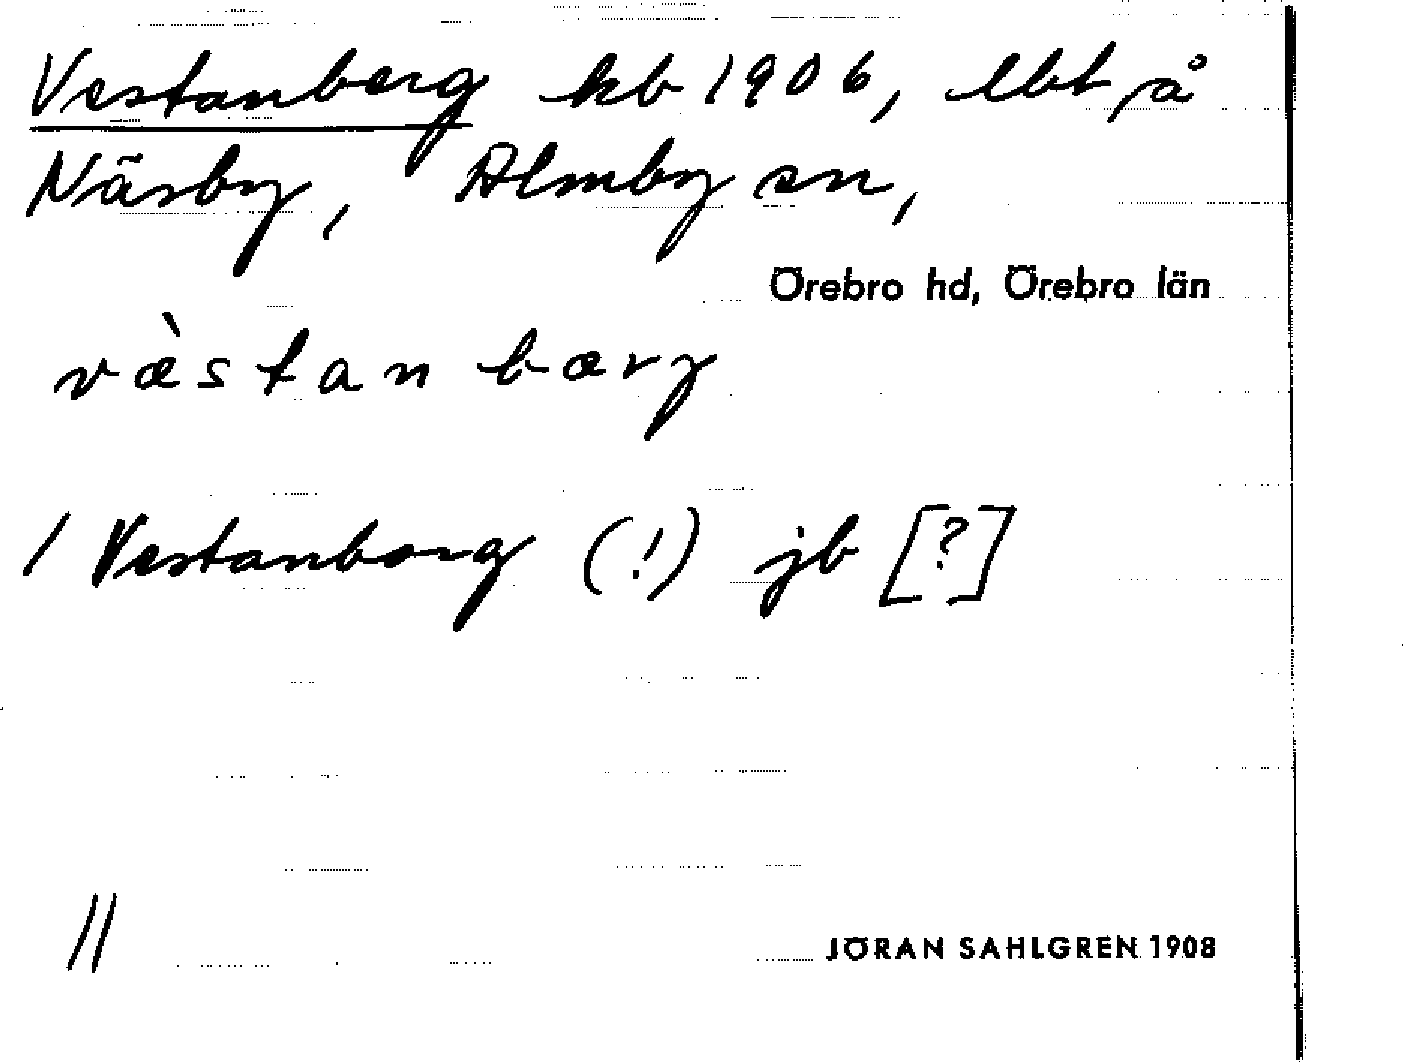 Vestanberg kb 1906, lbt på
Näsby, Almby sn,
Örebro hd, Örebro län
væ̀stanbærg
/ Vestanborg (!) jb [?]
//
JÖRAN SAHLGREN 1908